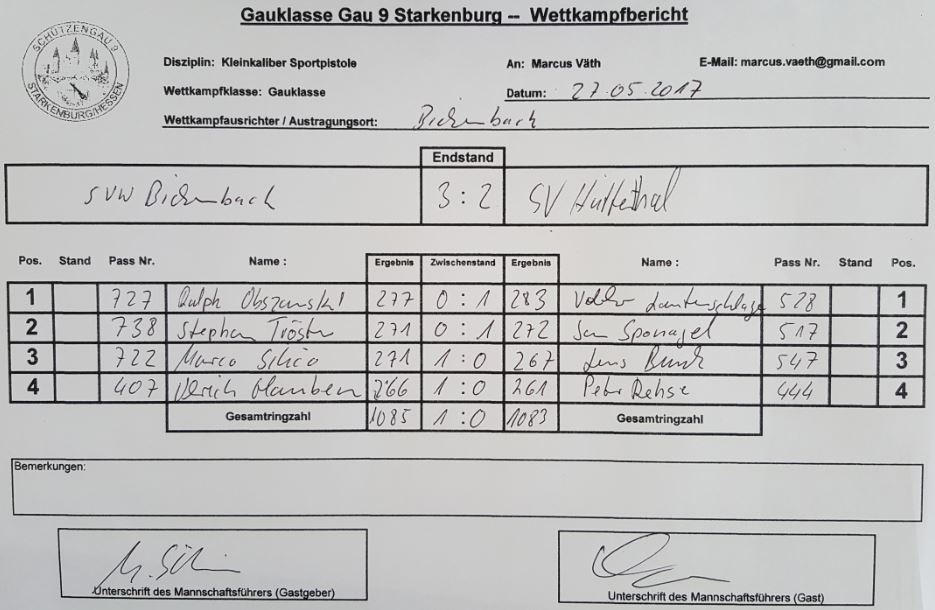 Gauklasse Gau 9 Starkenburg -- Wettkampfbericht
SCHÜTZENGAU 9
STARKENBURG/HESSEN
Disziplin: Kleinkaliber Sportpistole An: Marcus Väth E-Mail: marcus.vaeth@gmail.com
Wettkampfklasse: Gauklasse Datum: 27.05.2017
Wettkampfausrichter / Austragungsort: Bickenbach
Endstand
SVW Bickenbach 3:2 SV Hüttenthal
Pos. Stand Pass Nr. Name : Ergebnis Zwischenstand Ergebnis Name : Pass Nr. Stand Pos.
1 727 Ralph 277 0:1 283 Volker Lautenschläger 528 1
2 738 Stephan Tröster 271 0:1 272 Jan Sponagel 517 2
3 722 Marco 271 1:0 267 Jens 547 3
4 407 Ulrich 266 1:0 261 Peter Rehse 444 4
Gesamtringzahl 1085 1:0 1083 Gesamtringzahl
Bemerkungen:
Unterschrift des Mannschaftsführers (Gastgeber) Unterschrift des Mannschaftsführers (Gast)